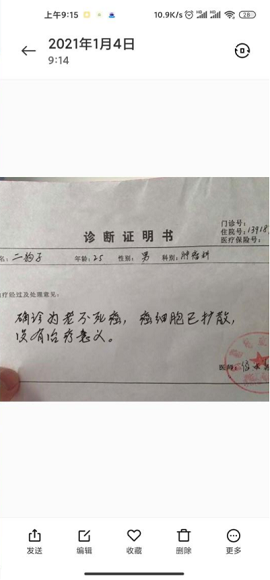 上午9:15 10.9K/s 28
2021年1月4日
9:14
门诊号：
诊断证明书
住院号：13918
医疗保险号：
名：二狗子 年龄：25 性别：男 科别：肿瘤科
治疗经过及处理意见：
确诊为老不死癌，癌细胞已扩散，
没有治疗意义。
医师：
发送 编辑 收藏 删除 更多